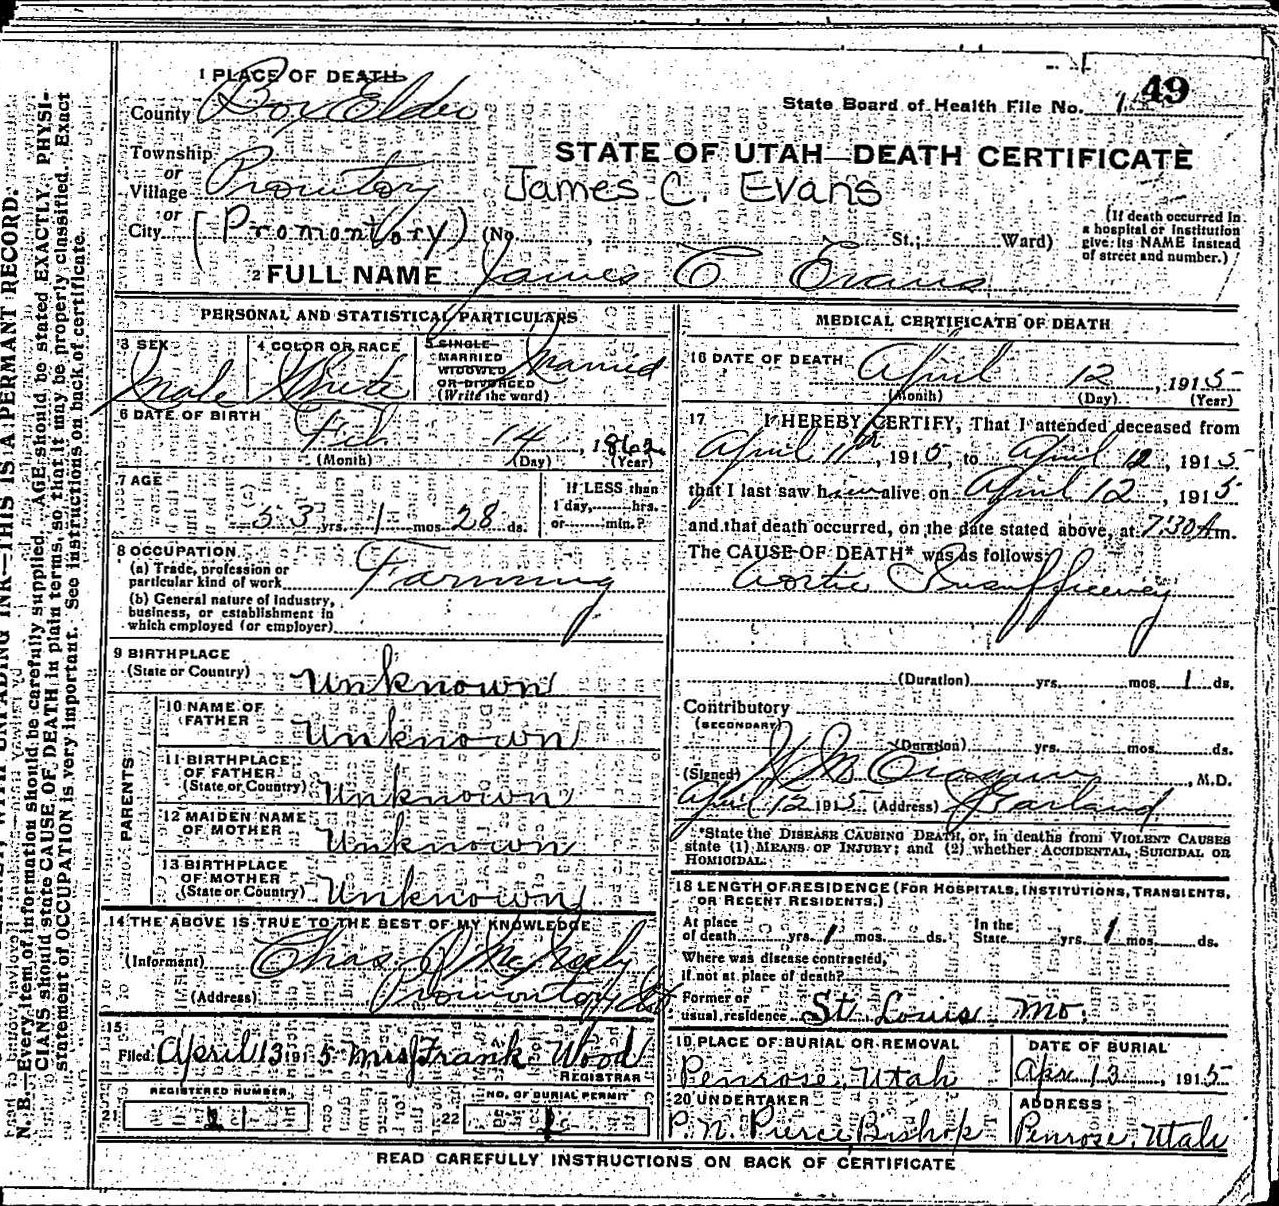 49
1 PLACE OF DEATH
County Box Elder
State Board of Health File No.
STATE OF UTAH—DEATH CERTIFICATE
Township
or
Village Promontory
James C. Evans
or
City (Promontory) (No. , St.; Ward)
(If death occurred in
a hospital or institution
give its NAME instead
of street and number.)
2 FULL NAME James C Evans
PERSONAL AND STATISTICAL PARTICULARS
3 SEX Male
4 COLOR OR RACE White
5 SINGLE
MARRIED
WIDOWED
OR DIVORCED
(Write the word)
Married
6 DATE OF BIRTH
Feb 14, 1862
(Month) (Day) (Year)
7 AGE
53 yrs. 1 mos. 28 ds.
If LESS than
1 day, hrs.
or min.?
8 OCCUPATION
(a) Trade, profession or
particular kind of work Farming
(b) General nature of Industry,
business, or establishment in
which employed (or employer)
9 BIRTHPLACE
(State or Country) Unknown
PARENTS
10 NAME OF
FATHER Unknown
11 BIRTHPLACE
OF FATHER
(State or Country) Unknown
12 MAIDEN NAME
OF MOTHER Unknown
13 BIRTHPLACE
OF MOTHER
(State or Country) Unknown
14 THE ABOVE IS TRUE TO THE BEST OF MY KNOWLEDGE
(Informant) Chas
(Address) Promontory
15
Filed April 13 1915 Mrs Frank Wood
REGISTRAR
REGISTERED NUMBER,
21
1
NO. OF BURIAL PERMIT
22
1
MEDICAL CERTIFICATE OF DEATH
16 DATE OF DEATH
April 12, 1915
(Month) (Day) (Year)
17 I HEREBY CERTIFY, That I attended deceased from
April 11th, 1915, to April 12, 1915
that I last saw him alive on April 12, 1915
and that death occurred, on the date stated above, at 7:30 A m.
The CAUSE OF DEATH* was as follows:
Aortic Insufficiency
(Duration) yrs. mos. 1 ds.
Contributory
(SECONDARY)
(Duration) yrs. mos. ds.
(Signed) M.D.
April 12 1915 (Address) Garland
*State the DISEASE CAUSING DEATH, or, in deaths from VIOLENT CAUSES
state (1) MEANS OF INJURY; and (2) whether ACCIDENTAL, SUICIDAL OR
HOMICIDAL.
18 LENGTH OF RESIDENCE (FOR HOSPITALS, INSTITUTIONS, TRANSIENTS,
OR RECENT RESIDENTS.)
At place
of death yrs. 1 mos. ds.
In the
State yrs. 1 mos. ds.
Where was disease contracted,
if not at place of death?
Former or
usual residence St Louis Mo.
19 PLACE OF BURIAL OR REMOVAL
Penrose, Utah
DATE OF BURIAL
Apr. 13, 1915
20 UNDERTAKER
P. N. Pierce, Bishop
ADDRESS
Penrose, Utah
READ CAREFULLY INSTRUCTIONS ON BACK OF CERTIFICATE
INK—THIS IS A PERMANT RECORD.
N. B.—Every item of information should be carefully supplied. AGE should be stated EXACTLY. PHYSI-
CIANS should state CAUSE OF DEATH in plain terms, so that it may be properly classified. Exact
statement of OCCUPATION is very important. See instructions on back of certificate.